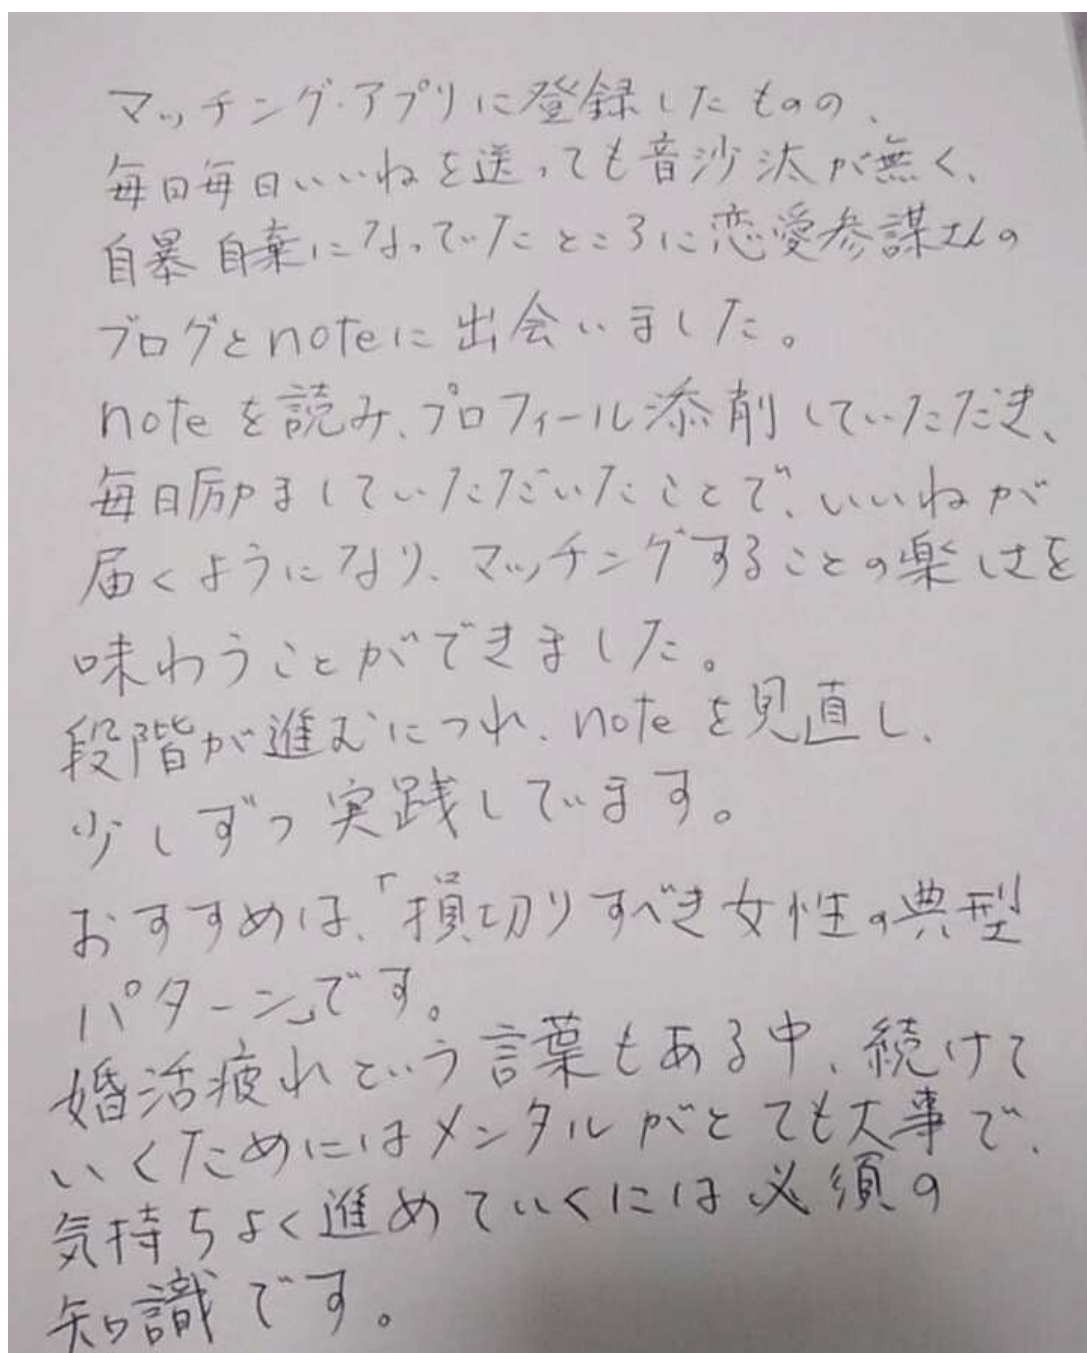 マッチング・アプリに登録したものの、
毎日毎日いいねを送っても音沙汰が無く、
自暴自棄になっていたところに恋愛参謀さんの
ブログとnoteに出会いました。
noteを読み、プロフィール添削していただき、
毎日励ましていただいたことで、いいねが
届くようになり、マッチングすることの楽しさを
味わうことができました。
段階が進むにつれ、noteを見直し、
少しずつ実践しています。
おすすめは、「損切りすべき女性の典型
パターン」です。
婚活疲れという言葉もある中、続けて
いくためにはメンタルがとても大事で、
気持ちよく進めていくには必須の
知識です。